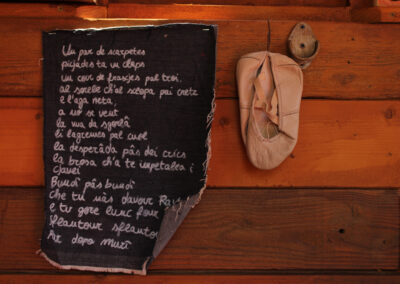 Un par de scarpetes
picjades ta un claps
un cour de frascjes pal troi,
al sorele ch'al sclopa pai cretz
e l'aga neta,
a sir se vent
la vua da sgorlâ
li lagremes pal cuel
la desperâda pâs dei crics
la brosa ch'a te impetalea i
cjavei
Bundi pâs bundi
che tu nâs davour
e tu gore lunc flour
sflantour sflantour
Air dopo muri